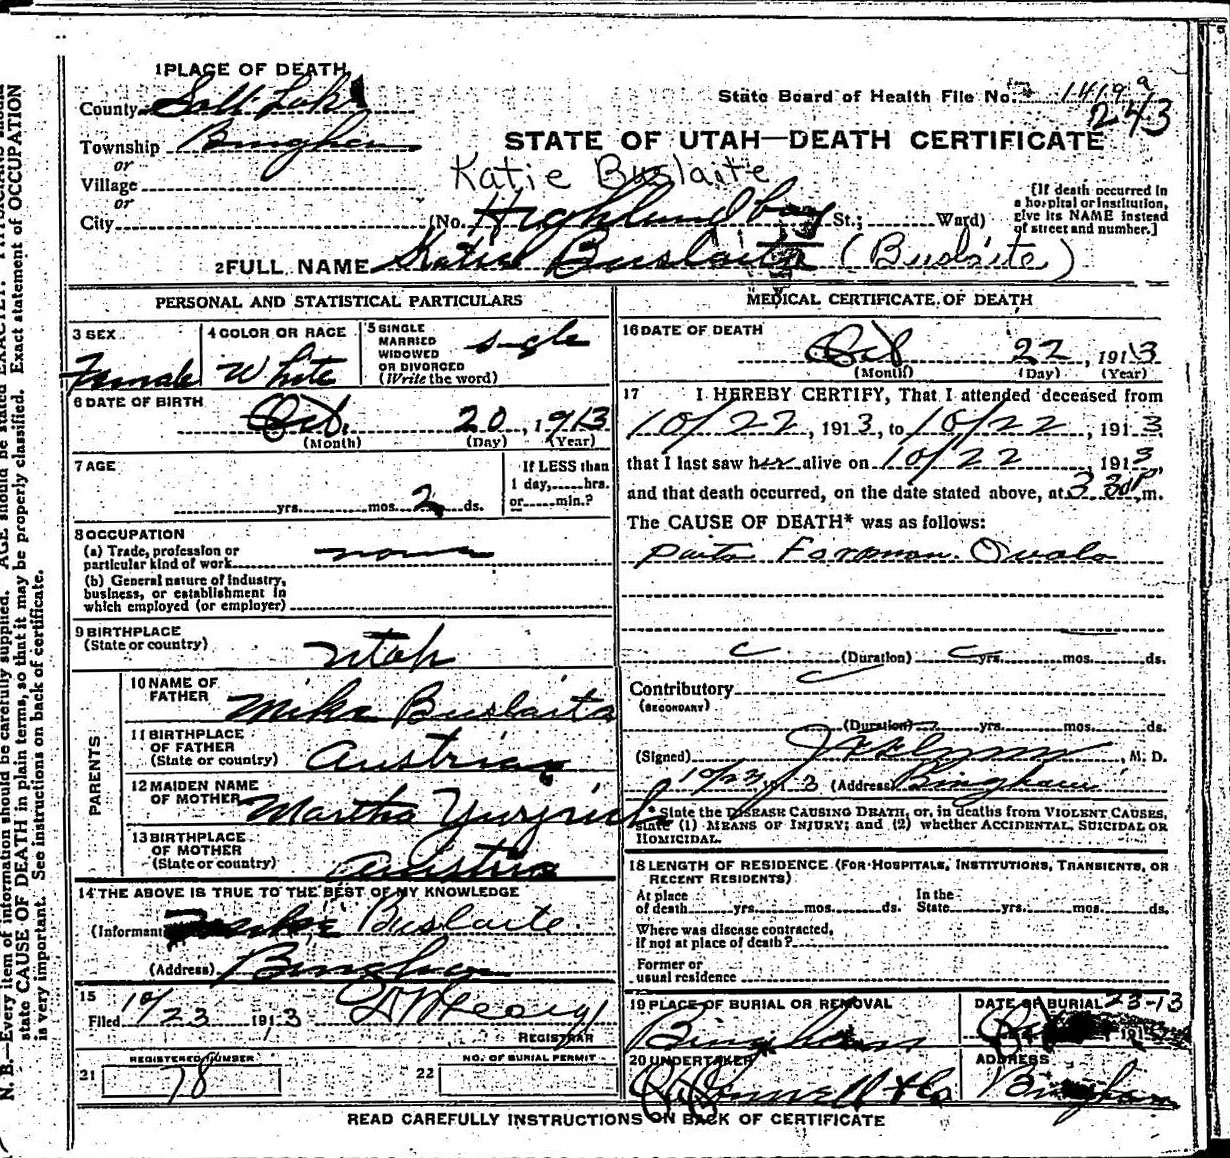 1 PLACE OF DEATH
County Salt Lake
State Board of Health File No. 1419
243
Township Bingham
STATE OF UTAH—DEATH CERTIFICATE
or
Village
Katie Buslaite
or
City (No. Highland Boy St.; Ward)
[If death occurred in a hospital or institution, give its NAME instead of street and number.]
2 FULL NAME Katie Buslaite (Buslaite)
PERSONAL AND STATISTICAL PARTICULARS
3 SEX Female
4 COLOR OR RACE White
5 SINGLE MARRIED WIDOWED OR DIVORCED (Write the word) single
6 DATE OF BIRTH
Oct. 20, 1913
(Month) (Day) (Year)
7 AGE
yrs. mos. 2 ds.
If LESS than 1 day, hrs. or min.?
8 OCCUPATION
(a) Trade, profession or particular kind of work none
(b) General nature of industry, business, or establishment in which employed (or employer)
9 BIRTHPLACE
(State or country) Utah
PARENTS
10 NAME OF FATHER Mike Buslaita
11 BIRTHPLACE OF FATHER (State or country) Austria
12 MAIDEN NAME OF MOTHER Martha
13 BIRTHPLACE OF MOTHER (State or country) Austria
14 THE ABOVE IS TRUE TO THE BEST OF MY KNOWLEDGE
(Informant Mike Buslaite.
(Address) Bingham
15
Filed 10/23 1913
REGISTRAR
REGISTERED NUMBER
21 78
NO. OF BURIAL PERMIT
22
MEDICAL CERTIFICATE OF DEATH
16 DATE OF DEATH
Oct 22, 1913
(Month) (Day) (Year)
17 I HEREBY CERTIFY, That I attended deceased from
10/22, 1913, to 10/22, 1913,
that I last saw her alive on 10/22, 1913,
and that death occurred, on the date stated above, at 3 30 P m.
The CAUSE OF DEATH* was as follows:
Foramen Ovale
(Duration) yrs. mos. ds.
Contributory
(SECONDARY)
(Duration) yrs. mos. ds.
(Signed) M. D.
10/23, 1913 (Address) Bingham
* State the DISEASE CAUSING DEATH, or, in deaths from VIOLENT CAUSES, state (1) MEANS OF INJURY; and (2) whether ACCIDENTAL, SUICIDAL OR HOMICIDAL.
18 LENGTH OF RESIDENCE (FOR HOSPITALS, INSTITUTIONS, TRANSIENTS, OR RECENT RESIDENTS)
At place of death yrs. mos. ds. In the State yrs. mos. ds.
Where was disease contracted, if not at place of death?
Former or usual residence
19 PLACE OF BURIAL OR REMOVAL Bingham
DATE OF BURIAL 23-13
Oct 191
20 UNDERTAKER & Co
ADDRESS Bingham
READ CAREFULLY INSTRUCTIONS ON BACK OF CERTIFICATE
N. B.—Every item of information should be carefully supplied. AGE should be stated EXACTLY.
state CAUSE OF DEATH in plain terms, so that it may be properly classified. Exact statement of OCCUPATION
is very important. See instructions on back of certificate.